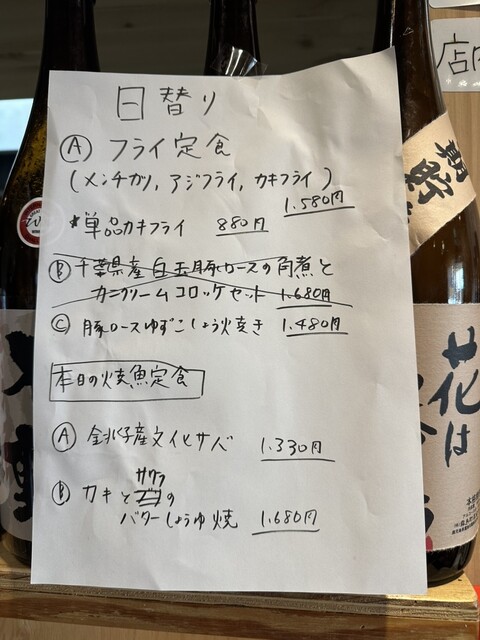 日替り
Ⓐ フライ定食
(メンチカツ, アジフライ, カキフライ)
1.580円
*単品カキフライ 880円
Ⓑ 千葉県産白玉豚ロースの角煮と
カニクリームコロッケセット 1.680円
Ⓒ 豚ロースゆずこしょう焼き 1.480円
本日の焼魚定食
Ⓐ 銚子産文化サバ 1.330円
サワラ
Ⓑ カキとの
バターしょうゆ焼 1.680円
店内
花は